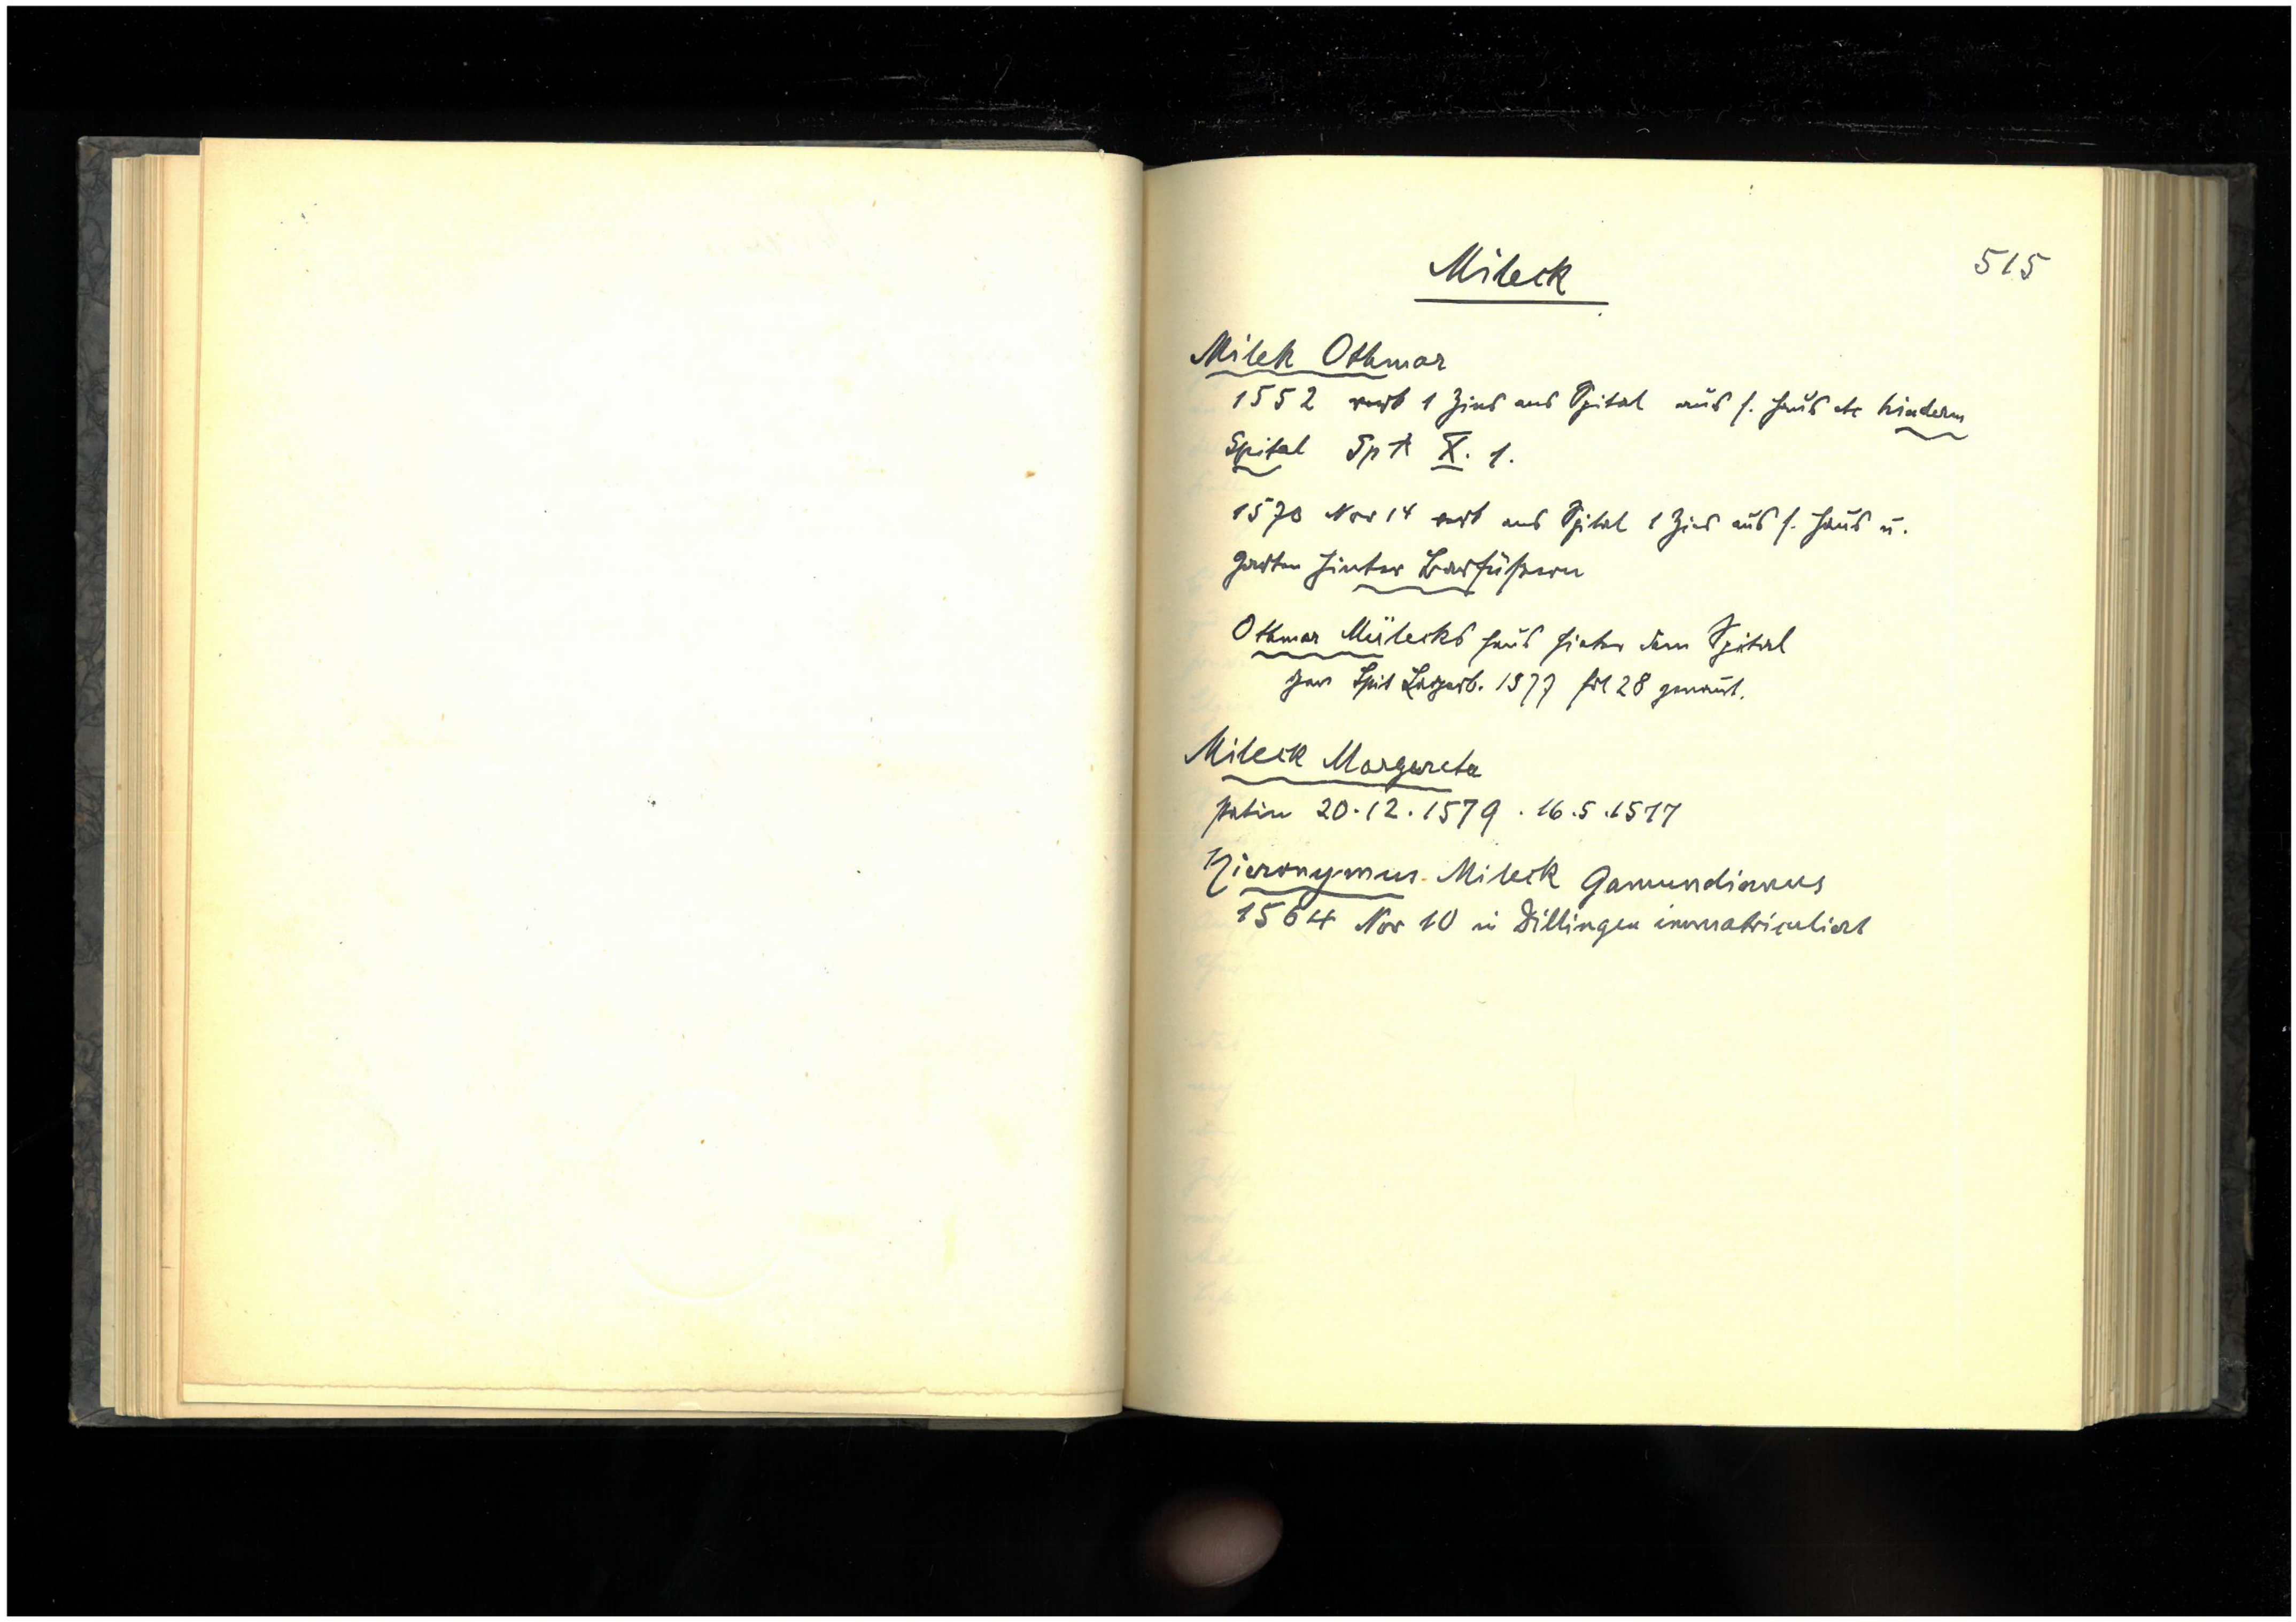 Mileck
515
Milek Othmar
1552 verk 1 Zins ans Spital aus s. Haus etc hinderm
Spital Sp A X. 1.
1570 Nov 14 verk ans Spital 1 Zins aus s. Haus u.
Garten hinter Barfüßern
Othmar Mülecks Haus hinter dem Spital
Spit Lagerb. 1577 fol 28 genannt.
Mileck Margareta
patin 20.12.1579 . 16.5.1577
Hieronymus Mileck Gamundianus
1564 Nov 10 in Dillingen immatriculiert